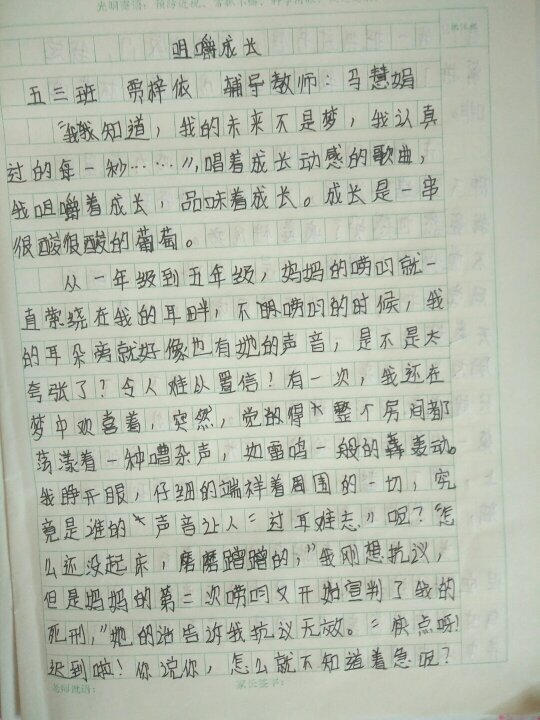 咀嚼成长
五三班 贾梓依 辅导教师：马慧娟
“我知道，我的未来不是梦，我认真
过的每一秒……”，唱着成长动感的歌曲，
我咀嚼着成长，品味着成长。成长是一串
很酸很酸的葡萄。
从一年级到五年级，妈妈的唠叨就一
直萦绕在我的耳畔，不唠叨的时候，我
的耳朵旁就好像也有她的声音，是不是太
夸张了？令人难以置信！有一次，我还在
梦中欢喜着，突然，觉的得整个房间都
荡漾着一种嘈杂声，如雷鸣一般的轰动。
我睁开眼，仔细的端祥着周围的一切，究
竟是谁的声音让人“过耳难忘”呢？“怎
么还没起床，磨磨蹭蹭的，”我刚想抗议，
但是妈妈的第二次唠叨又开始宣判了我的
死刑，”她的话告诉我抗议无效。“快点呀！
迟到啦！你说你，怎么就不知道着急呢？
家长签字：